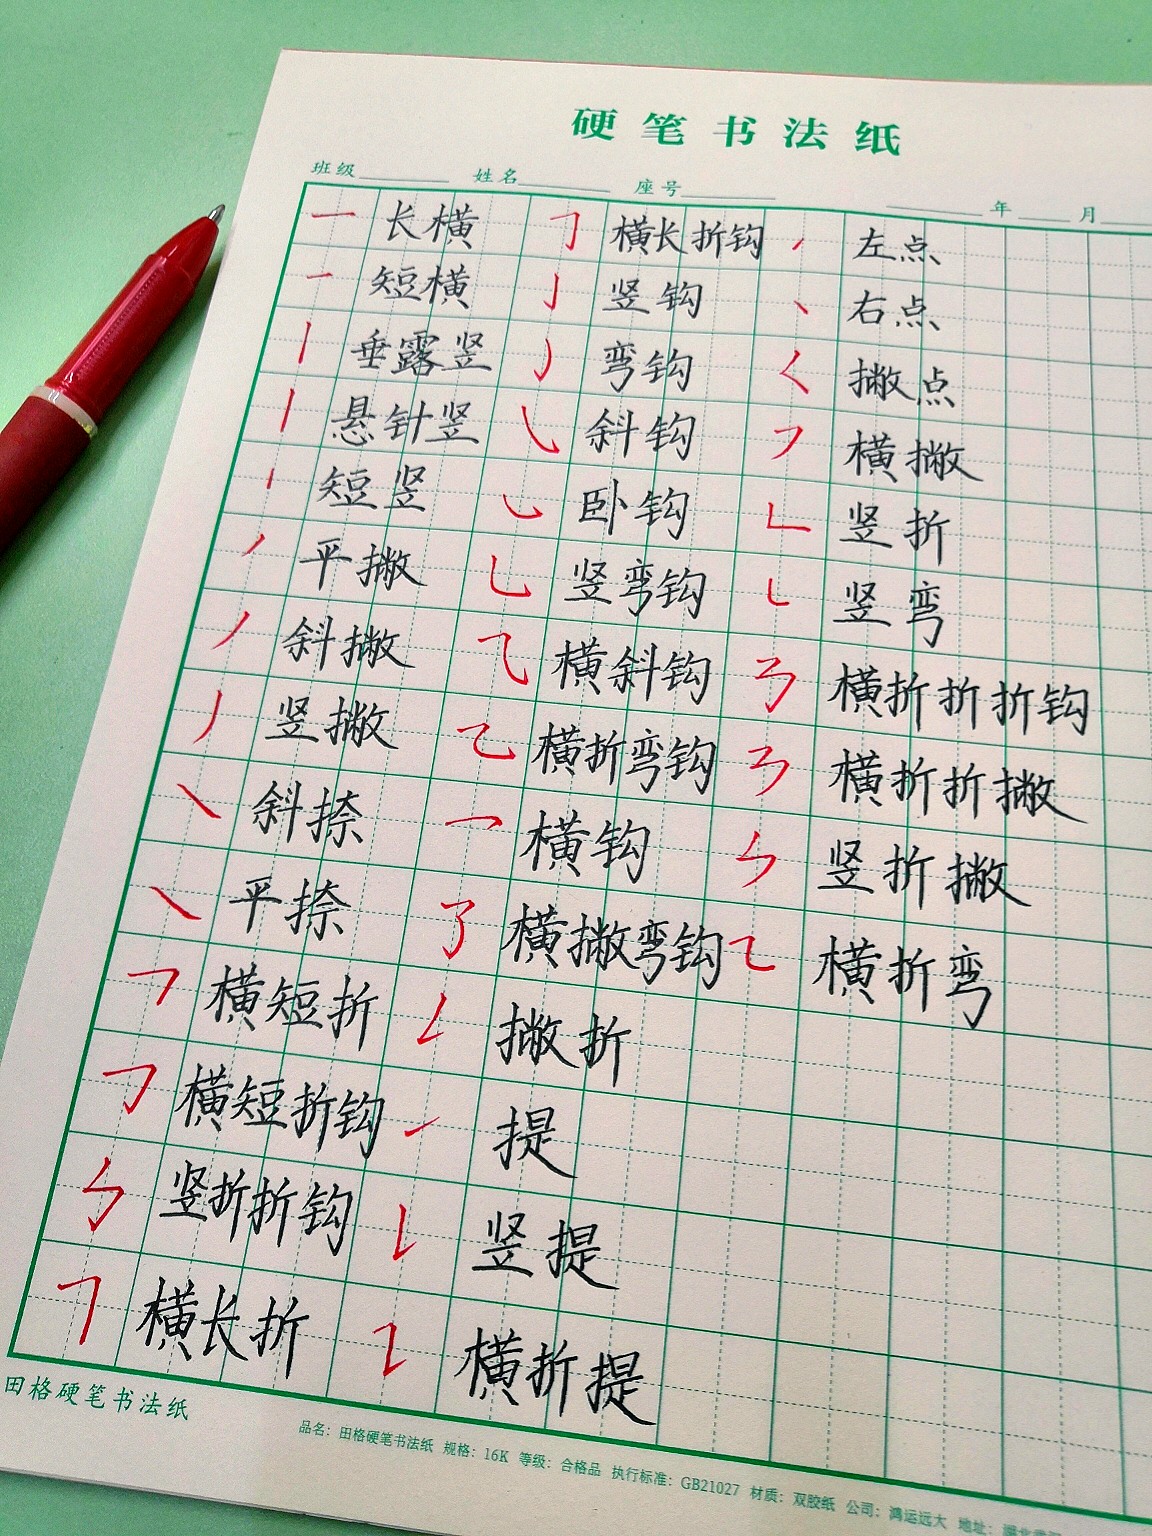 硬笔书法纸
班级 姓名 座号 年 月
一 长横
㇆ 横长折钩
㇒ 左点
一 短横
亅 竖钩
丶 右点
丨 垂露竖
㇁ 弯钩
𡿨 撇点
丨 悬针竖
㇂ 斜钩
㇇ 横撇
丨 短竖
㇃ 卧钩
㇗ 竖折
㇒ 平撇
乚 竖弯钩
㇄ 竖弯
丿 斜撇
⺄ 横斜钩
㇡ 横折折折钩
㇓ 竖撇
乙 横折弯钩
㇋ 横折折撇
㇏ 斜捺
乛 横钩
ㄣ 竖折撇
㇏ 平捺
㇌ 横撇弯钩
㇍ 横折弯
㇕ 横短折
㇜ 撇折
㇆ 横短折钩
㇀ 提
㇉ 竖折折钩
㇙ 竖提
㇕ 横长折
㇊ 横折提
田格硬笔书法纸
品名：田格硬笔书法纸 规格：16K 等级：合格品 执行标准：GB21027 材质：双胶纸 公司：鸿运远大 地址：